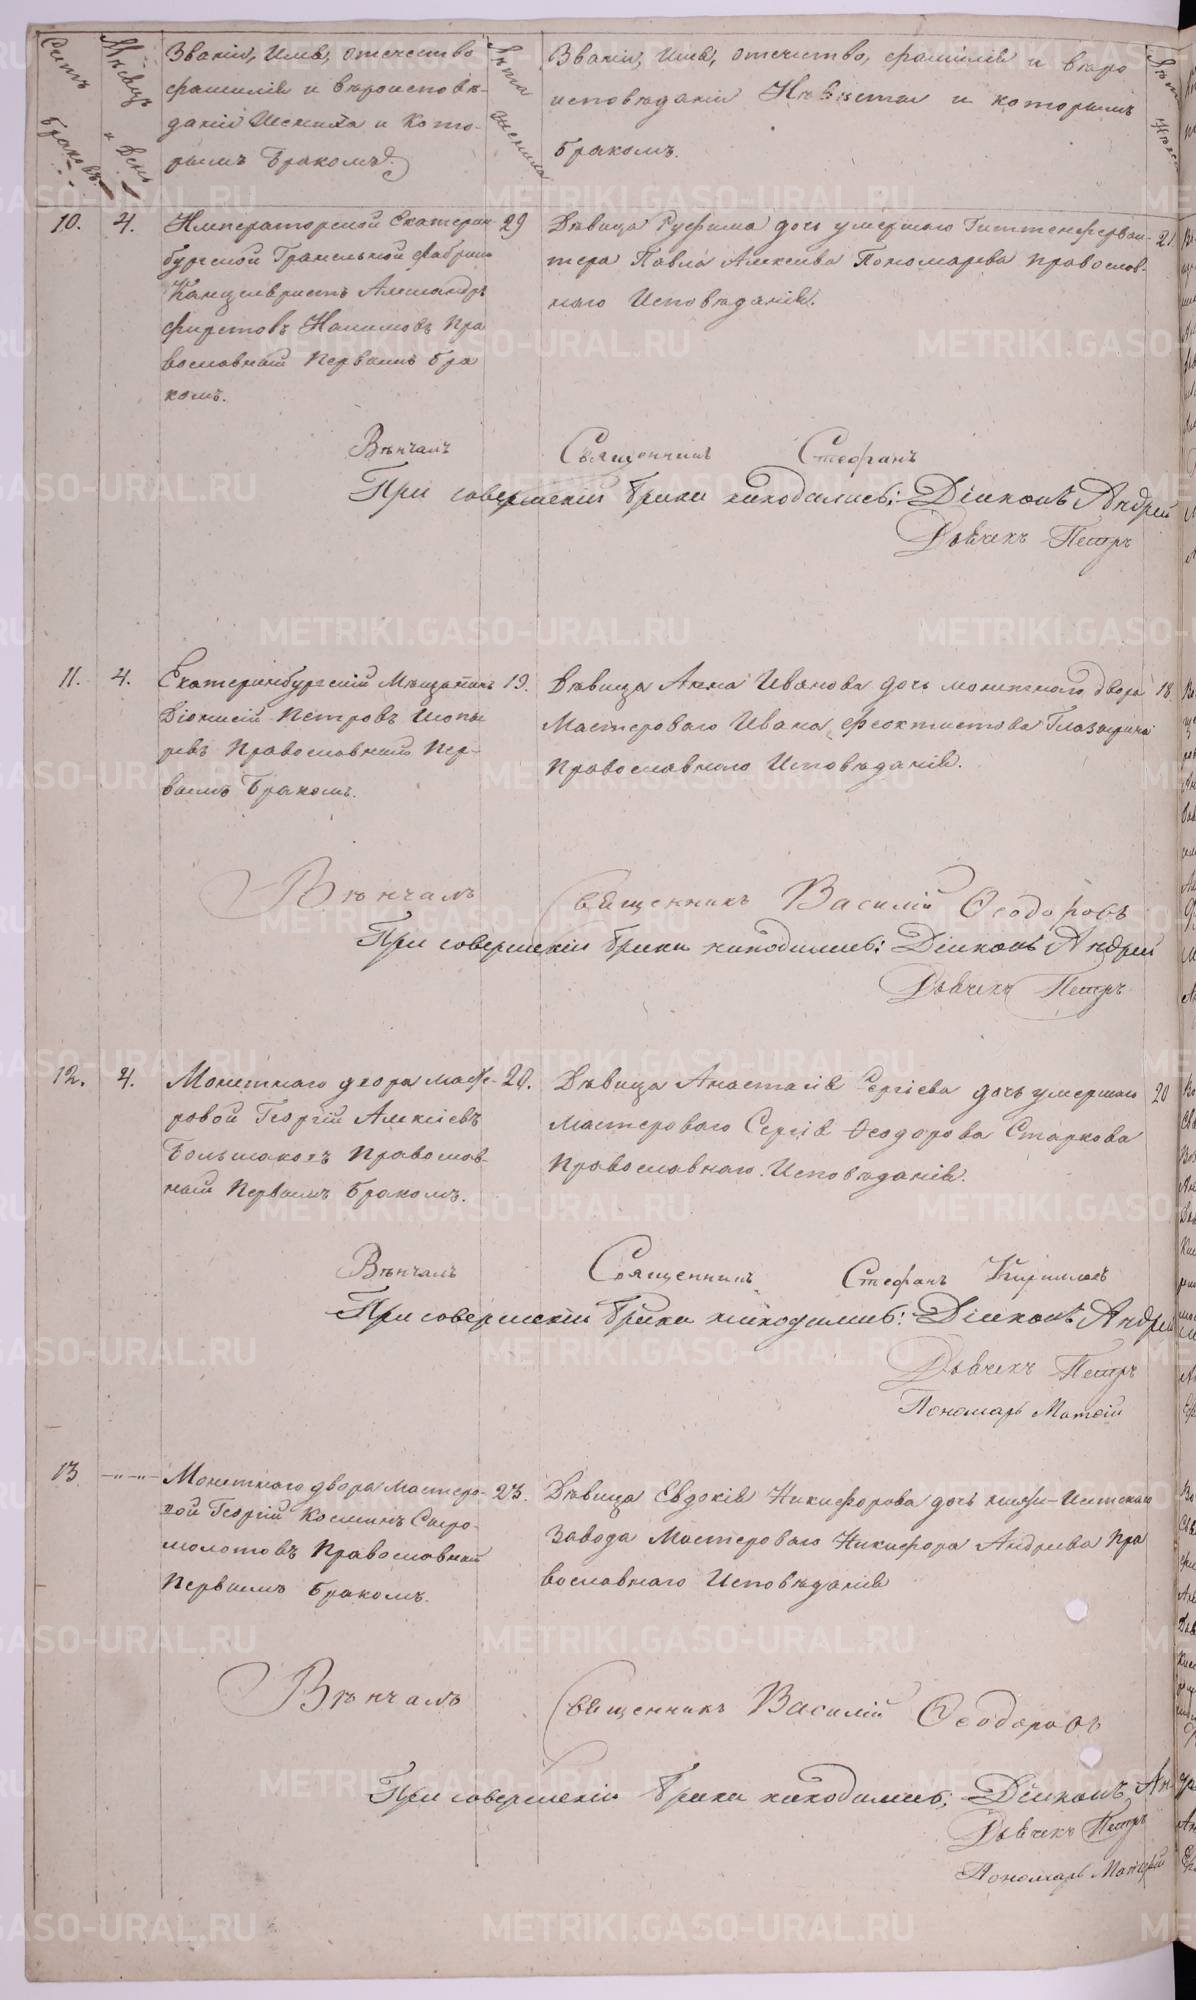 Счетъ браковъ.
Мѣсяцъ и день
Званіе, Имя, отечество
фамилія и вѣроисповѣ-
даніе Жениха и кото-
рымъ Бракомъ.
Лѣта жениха
Званіе, Имя, отечество, фамилія и вѣро
исповѣданіе Невѣсты и которымъ
бракомъ.
10. 4. Императорской Екатерин- 29
бургской Гранильной фабрики
Канцеляристъ Александръ
Налимовъ Пра
вославный Первымъ бра
комъ.
Дѣвица Руфима дочь умершаго Гиттенфервал- 21
тера Павла Алексѣева Пономарева Православ-
наго Исповѣданія.
Вѣнчалъ Священникъ Стефанъ
При совершеніи брака находились: Діаконъ Андрей
Дьячекъ Петръ
11. 4. Екатеринбургскій Мѣщанинъ 19.
Діонисій Петровъ
Православный Пер-
вымъ Бракомъ.
Дѣвица Анна Иванова дочь монетнаго двора 18
Мастероваго Ивана Феоктистова Глазырина
Православнаго Исповѣданія.
Вѣнчалъ Священникъ Василій Ѳеодоровъ
При совершеніи брака находились: Діаконъ Андрей
Дьячекъ Петръ
12. 4. Монетнаго двора масте- 20.
ровой Георгій Алексіевъ
Большаковъ Православ-
ный Первымъ бракомъ.
Дѣвица Анастасія Сергіева дочь умершаго 20
мастероваго Сергія Ѳеодорова Старкова
Православнаго Исповѣданія.
Вѣнчалъ Священникъ Стефанъ Кирилловъ
При совершеніи брака находились: Діаконъ Андрей
Дьячекъ Петръ
Пономарь Матѳій
13 —"—"— Монетнаго двора мастеро- 23.
вой Георгій Косминъ Сыро-
молотовъ Православный
Первымъ бракомъ.
Дѣвица Евдокія Никифорова дочь нижне-Исетскаго
Завода Мастероваго Никифора Андреева Пра
вославнаго Исповѣданія
Вѣнчалъ Священникъ Василій Ѳеодоровъ
При совершеніи брака находились; Діаконъ Ан
Дьячекъ Петръ
Пономарь Матѳій
METRIKI.GASO-URAL.RU